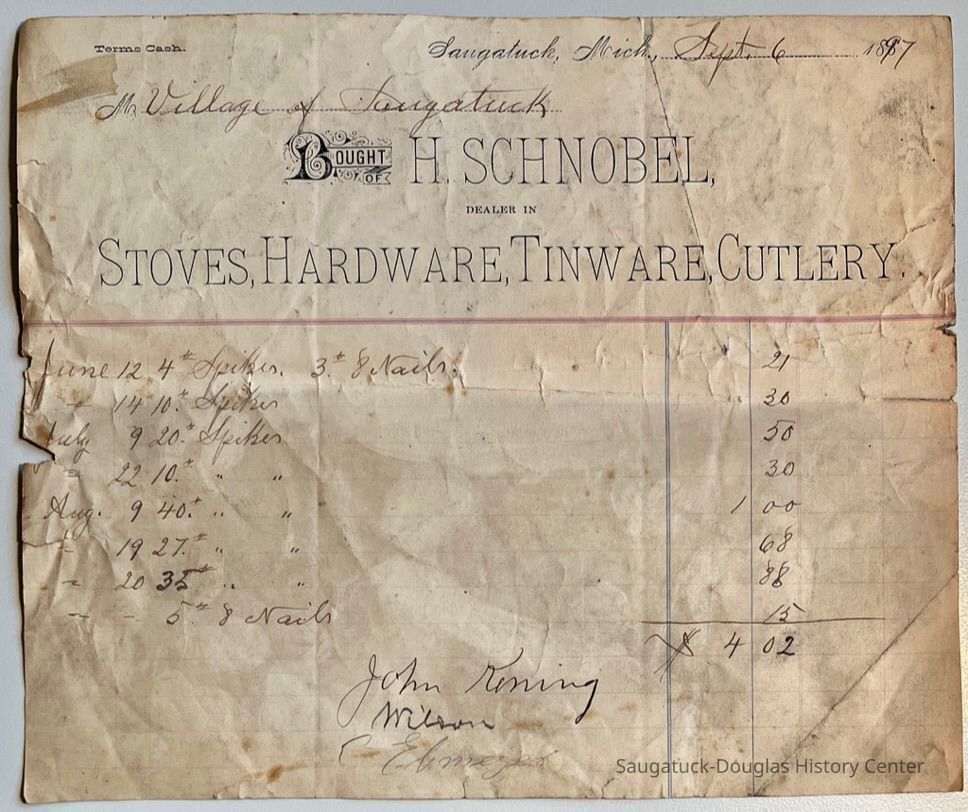 Terms Cash.
Saugatuck, Mich., Sept. 6 1897
M Village of Saugatuck
BOUGHT OF H. SCHNOBEL,
DEALER IN
STOVES, HARDWARE, TINWARE, CUTLERY.
June 12 4# Spikes. 3# 8 Nails. 21
" 14 10# Spikes 30
July 9 20# Spikes 50
" 22 10# " " 30
Aug. 9 40# " " 1 00
" 19 27# " " 68
" 20 35# " " 88
" " 5# 8 Nails 15
$ 4 02
John Koning
Wilson
Saugatuck-Douglas History Center